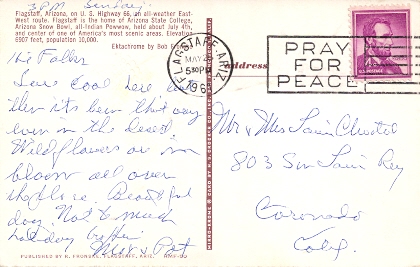 3 P.M. Sunday.
Flagstaff, Arizona, on U. S. Highway 66, an all-weather East-
West route. Flagstaff is the home of Arizona State College,
Arizona Snow Bowl, all-Indian Powwow, held about July 4th,
and center of one of America's most scenic areas. Elevation
6907 feet, population 10,000.
Ektachrome by Bob
Hi Folks
Sure cool here but
then its been that way
even in the desert.
Wildflowers are in
bloom all over
the place. Beautiful
day. Not to much
holiday traffic.
Max & Pat
PUBLISHED BY K. FRONSKE, FLAGSTAFF, ARIZ.
FLAGSTAFF, ARIZ.
MAY
5 30 PM
PRAY
FOR
PEACE
4¢
U.S. POSTAGE
address
Mr & Mrs
803 San Luis Rey
Coronado
Calif.